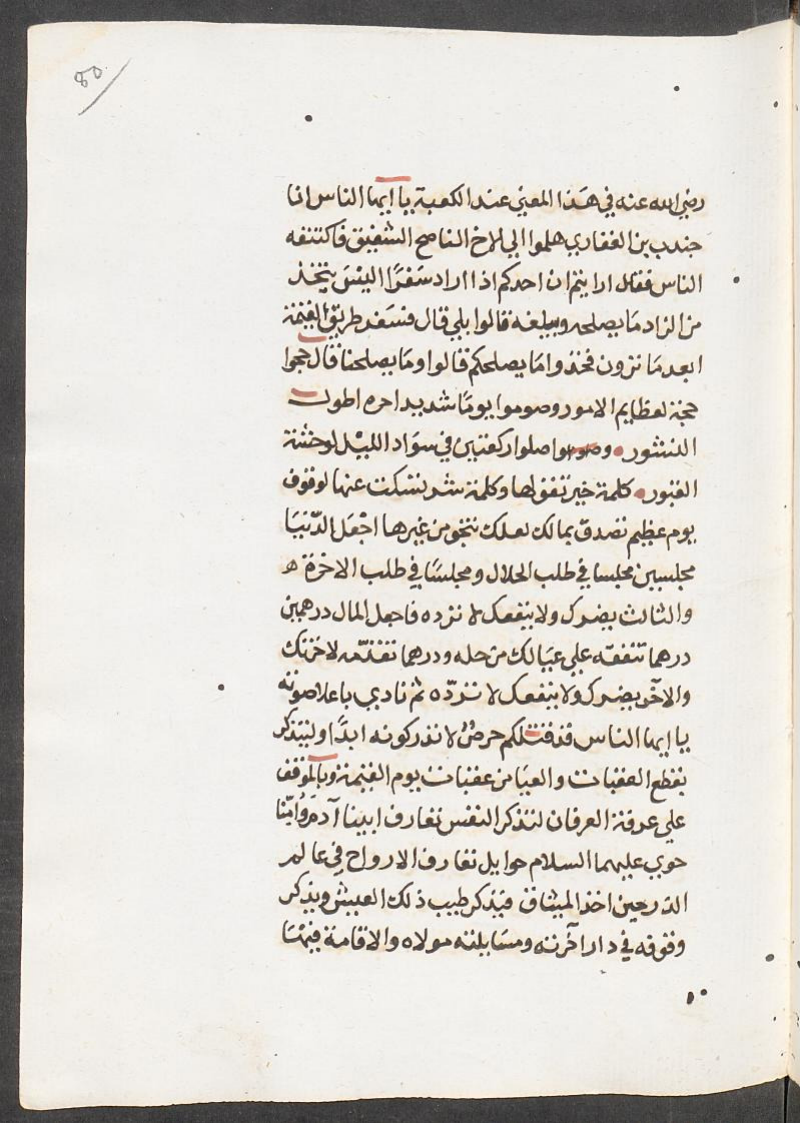 80
رضي الله عنه في هذا المعني عند الكعبة يا ايها الناس انا
جندب بن الغفاري هلموا الي للاخ الناصح الشفيق فاكتنفه
الناس فقال ارايتم ان احدكم اذا اراد سفرًا اليس يتخذ
من الزاد ما يصلحه ويبلغه قالوا بلي قال فسفر طريق القيمة
ابعد ما ترون فخذوا ما يصلحكم قالوا وما يصلحنا قال حجوا
حجة لعظايم الامور وصوموا يومًا شديد احره لطول
النشور وصلوا ركعتين في سواد الليل لوحشة
القبور كلمة خير تقولها وكلمة شر تسكت عنها لوقوف
يوم عظيم تصدق بمالك لعلك تنجو من غيرها اجعل الدّنيا
مجلسين مجلسا في طلب الحلال ومجلسًا في طلب الاخرة ه
والثالث يضرك ولا ينفعك لا ترده فاجعل المال درهمين
درهما تنفقه علي عيالك من حله ودرهما تقدّمه لاخرتك
والآخر يضرك ولا ينفعك لا تردّه ثم نادي باعلا صوته
يا ايها الناس قد قتلكم حرصٌ لا تدركونه ابدًا وليتذكر
بقطع العقبات والعيا من عقبات يوم القيمة وبالموقف
علي عرفة العرفان لتذكر النفس تعارف ابينا آدم وامّنا
حوي عليهما السلام حوايل تعارف الارواح في عالم
الذر حين اخذ الميثاق فيذكر طيب ذلك العيش ويذكر
وقوفه في دار آخرته ومسايلته مولاه والاقامة فيها